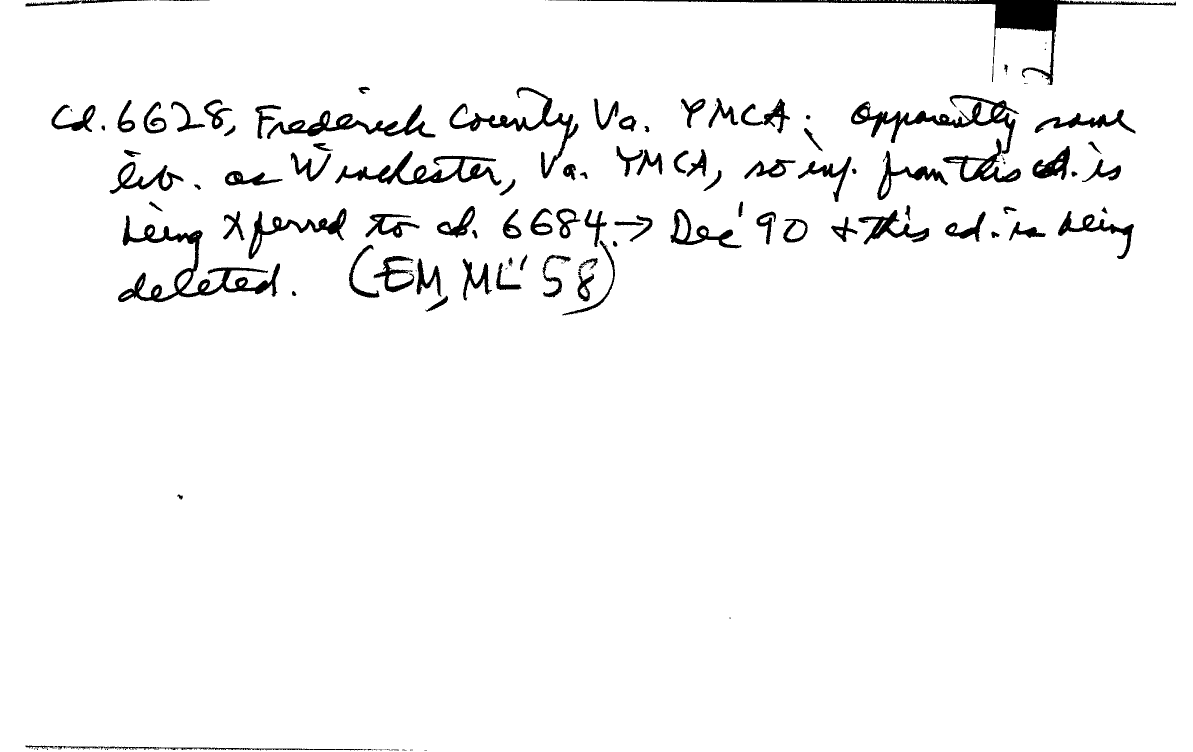 Cd. 6628, Frederick County, Va. YMCA: Apparently same
lib. as Winchester, Va. YMCA, so inf. from this cd. is
being Xferred to cd. 6684. → Dec '90 + this cd. is being
deleted. (EM, ML '58)